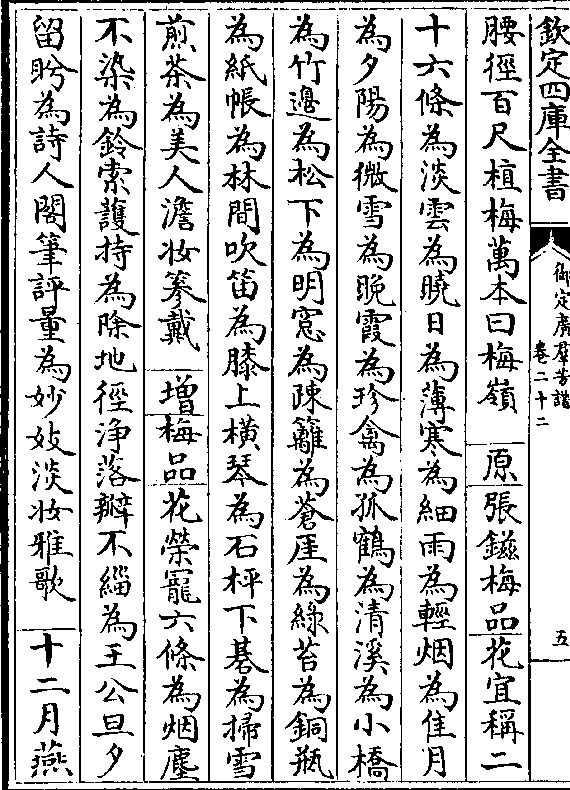 欽定四庫全書
御定廣羣芳譜
卷二十二
五
腰徑百尺植梅萬本曰梅嶺 原 張鎡梅品 花宜稱二
十六條為淡雲為曉日為薄寒為細雨為輕烟為佳月
為夕陽為微雪為晚霞為珍禽為孤鶴為清溪為小橋
為竹邊為松下為明窻為疎籬為蒼厓為綠苔為銅瓶
為紙帳為林間吹笛為膝上横琴為石枰下棊為掃雪
煎茶為美人澹妝篸戴 增 梅品 花榮寵六條為烟塵
不染為鈴索護持為除地徑浄落瓣不緇為王公旦夕
留盻為詩人閣筆評量為妙妓淡妝雅歌 十二月燕